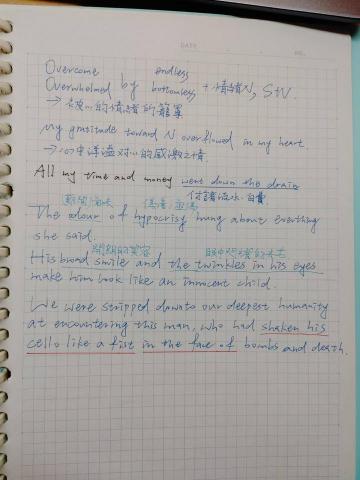 DATE
NO.
Overcome endless
Overwhelmed by bottomless + 情緒N, S+W.
→ 的情緒的籠罩
My gratitude toward N overflowed in my heart
→ 心中洋溢對心的感激之情
All my time and money went down the drain
付諸流水、白費
The odour of hypocrisy hung about everthing
she said.
開朗的笑容
His broad smile and the twinkles in his eyes
make him look like an innocent child.
We were stripped downto our deepest humanity
at encountering this man, who had shaken his
cello like a fist in the face of bombs and death.